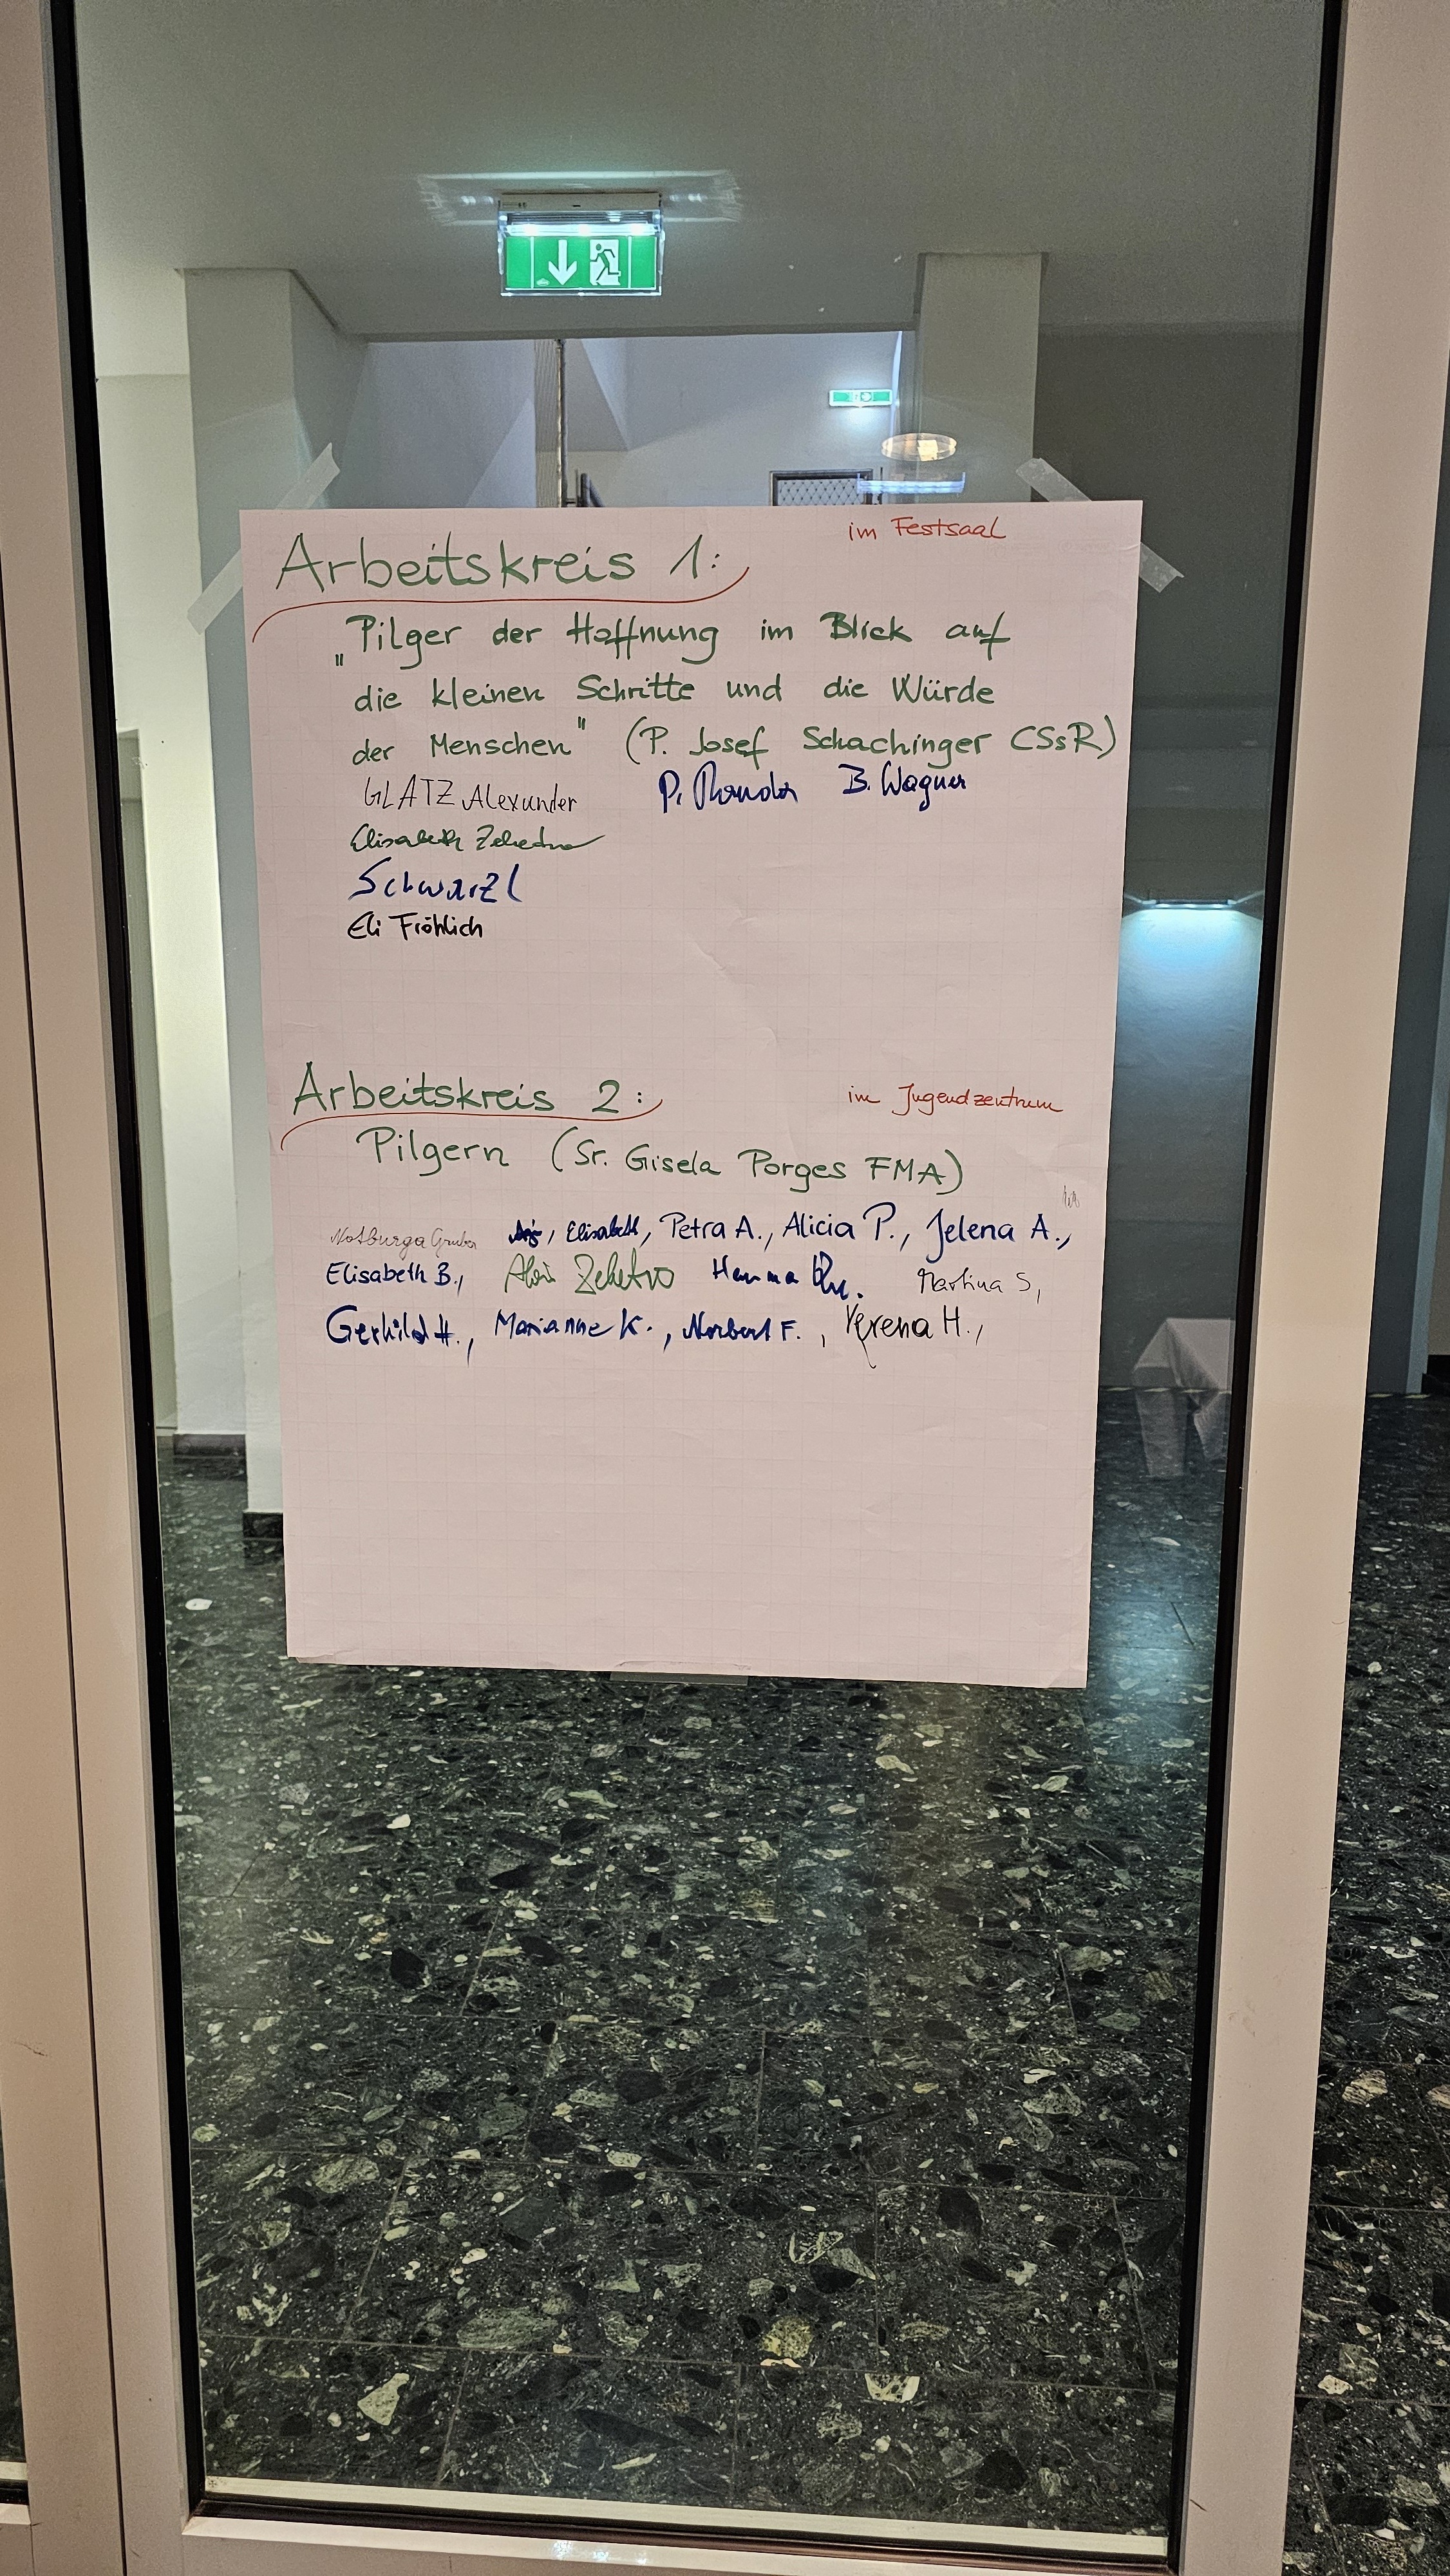 im Festsaal
Arbeitskreis 1:
„Pilger der Hoffnung im Blick auf
die kleinen Schritte und die Würde
der Menschen" (P. Josef Schachinger CSsR)
GLATZ Alexander P. B. Wagner
Elisabeth
Schwarzl
Eli Fröhlich
Arbeitskreis 2: im Jugendzentrum
Pilgern (Sr. Gisela Porges FMA)
Notburga Gruber Elisabeth, Petra A., Alicia P., Jelena A.,
Elisabeth B., Alois Hanna Martina S,
Gerhild H., Marianne K., Norbert F., Verena H.,